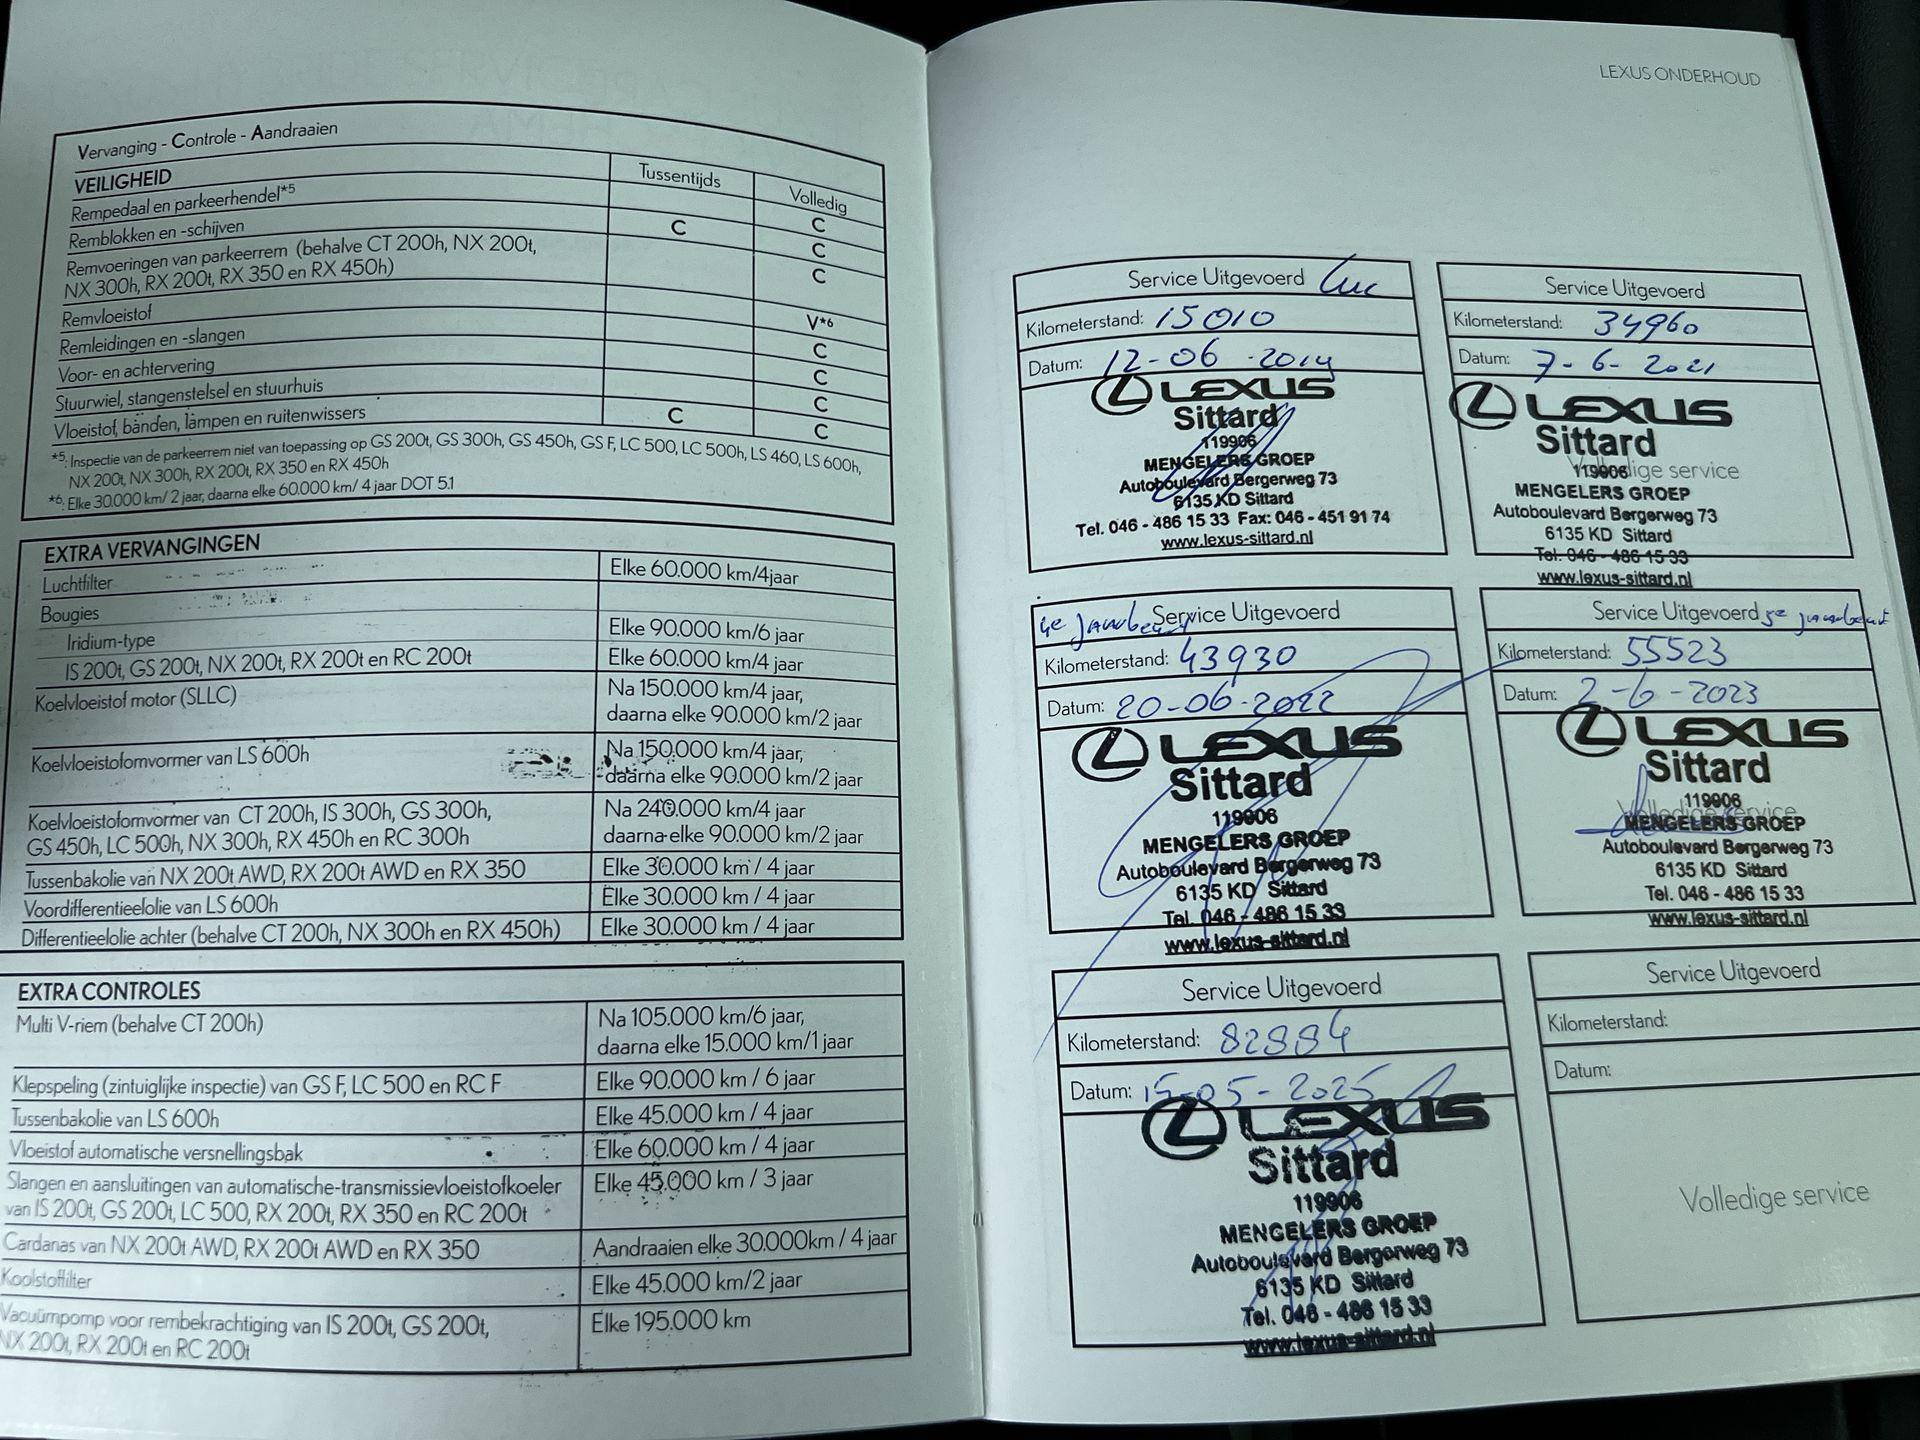 Vervanging - Controle - Aandraaien
VEILIGHEID Tussentijds Volledig
Rempedaal en parkeerhendel*5 C
Remblokken en -schijven C C
Remvoeringen van parkeerrem (behalve CT 200h, NX 200t, C
NX 300h, RX 200t, RX 350 en RX 450h)
Remvloeistof V*6
Remleidingen en -slangen C
Voor- en achtervering C
Stuurwiel, stangenstelsel en stuurhuis C
Vloeistof, banden, lampen en ruitenwissers C C
*5: Inspectie van de parkeerrem niet van toepassing op GS 200t, GS 300h, GS 450h, GS F, LC 500, LC 500h, LS 460, LS 600h,
NX 200t, NX 300h, RX 200t, RX 350 en RX 450h
*6: Elke 30.000 km/ 2 jaar, daarna elke 60.000 km/ 4 jaar DOT 5.1
EXTRA VERVANGINGEN
Luchtfilter Elke 60.000 km/4jaar
Bougies
Iridium-type Elke 90.000 km/6 jaar
IS 200t, GS 200t, NX 200t, RX 200t en RC 200t Elke 60.000 km/4 jaar
Koelvloeistof motor (SLLC) Na 150.000 km/4 jaar,
daarna elke 90.000 km/2 jaar
Koelvloeistofomvormer van LS 600h Na 150.000 km/4 jaar,
daarna elke 90.000 km/2 jaar
Koelvloeistofomvormer van CT 200h, IS 300h, GS 300h, Na 240.000 km/4 jaar
GS 450h, LC 500h, NX 300h, RX 450h en RC 300h daarna elke 90.000 km/2 jaar
Tussenbakolie van NX 200t AWD, RX 200t AWD en RX 350 Elke 30.000 km / 4 jaar
Voordifferentieelolie van LS 600h Elke 30.000 km / 4 jaar
Differentieelolie achter (behalve CT 200h, NX 300h en RX 450h) Elke 30.000 km / 4 jaar
EXTRA CONTROLES
Multi V-riem (behalve CT 200h) Na 105.000 km/6 jaar,
daarna elke 15.000 km/1 jaar
Klepspeling (zintuiglijke inspectie) van GS F, LC 500 en RC F Elke 90.000 km / 6 jaar
Tussenbakolie van LS 600h Elke 45.000 km / 4 jaar
Vloeistof automatische versnellingsbak Elke 60.000 km / 4 jaar
Slangen en aansluitingen van automatische-transmissievloeistofkoeler Elke 45.000 km / 3 jaar
van IS 200t, GS 200t, LC 500, RX 200t, RX 350 en RC 200t
Cardanas van NX 200t AWD, RX 200t AWD en RX 350 Aandraaien elke 30.000km / 4 jaar
Koolstoffilter Elke 45.000 km/2 jaar
Vacuümpomp voor rembekrachtiging van IS 200t, GS 200t, Elke 195.000 km
NX 200t, RX 200t en RC 200t
LEXUS ONDERHOUD
Service Uitgevoerd Luc
Kilometerstand: 15010
Datum: 12-06-2019
LEXUS
Sittard
119906
MENGELERS GROEP
Autoboulevard Bergerweg 73
6135 KD Sittard
Tel. 046 - 486 15 33 Fax: 046 - 451 91 74
www.lexus-sittard.nl
Service Uitgevoerd
Kilometerstand: 34960
Datum: 7-6-2021
LEXUS
Sittard
119906
Volledige service
MENGELERS GROEP
Autoboulevard Bergerweg 73
6135 KD Sittard
Tel. 046 - 486 15 33
www.lexus-sittard.nl
4e jaarbeurt Service Uitgevoerd
Kilometerstand: 43930
Datum: 20-06-2022
LEXUS
Sittard
119906
MENGELERS GROEP
Autoboulevard Bergerweg 73
6135 KD Sittard
Tel. 046 - 486 15 33
www.lexus-sittard.nl
Service Uitgevoerd 5e jaarbeurt
Kilometerstand: 55523
Datum: 2-6-2023
LEXUS
Sittard
119906
Volledige service
MENGELERS GROEP
Autoboulevard Bergerweg 73
6135 KD Sittard
Tel. 046 - 486 15 33
www.lexus-sittard.nl
Service Uitgevoerd
Kilometerstand: 82884
Datum: 15-05-2025
LEXUS
Sittard
119906
MENGELERS GROEP
Autoboulevard Bergerweg 73
6135 KD Sittard
Tel. 046 - 486 15 33
www.lexus-sittard.nl
Service Uitgevoerd
Kilometerstand:
Datum:
Volledige service